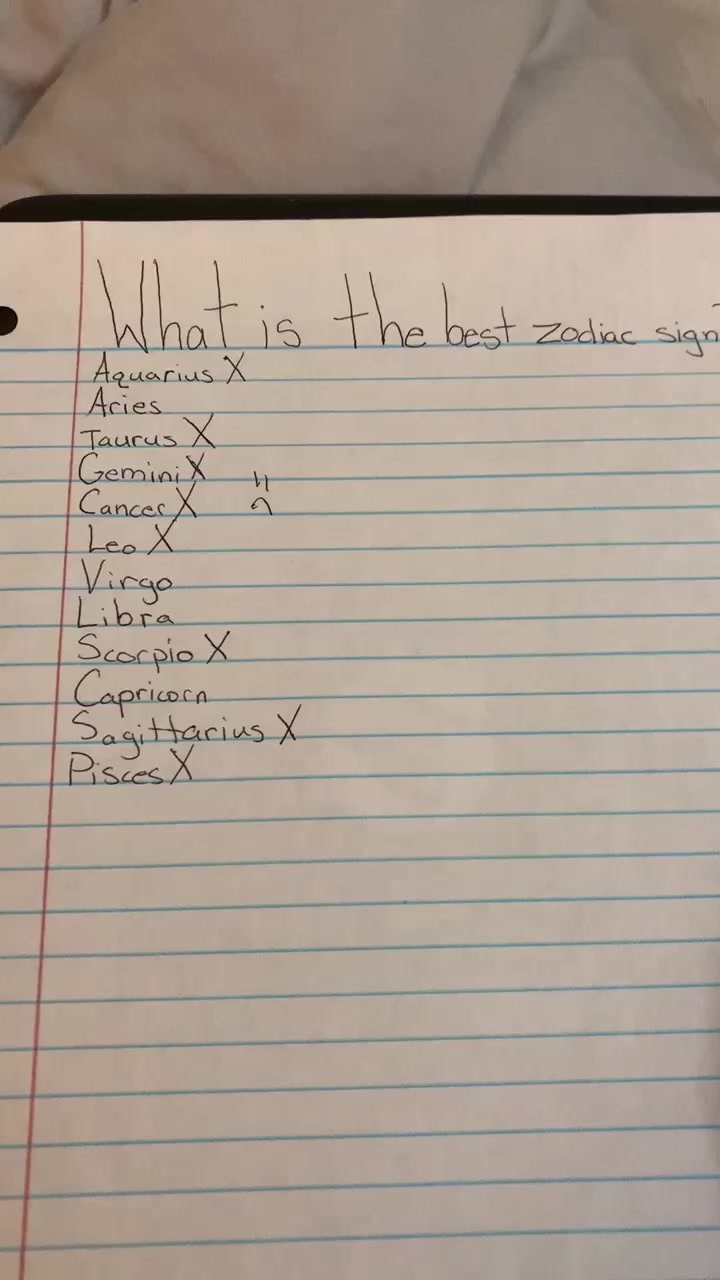 What is the best zodiac sign
Aquarius X
Aries
Taurus X
Gemini X
Cancer X
Leo X
Virgo
Libra
Scorpio X
Capricorn
Sagittarius X
Pisces X